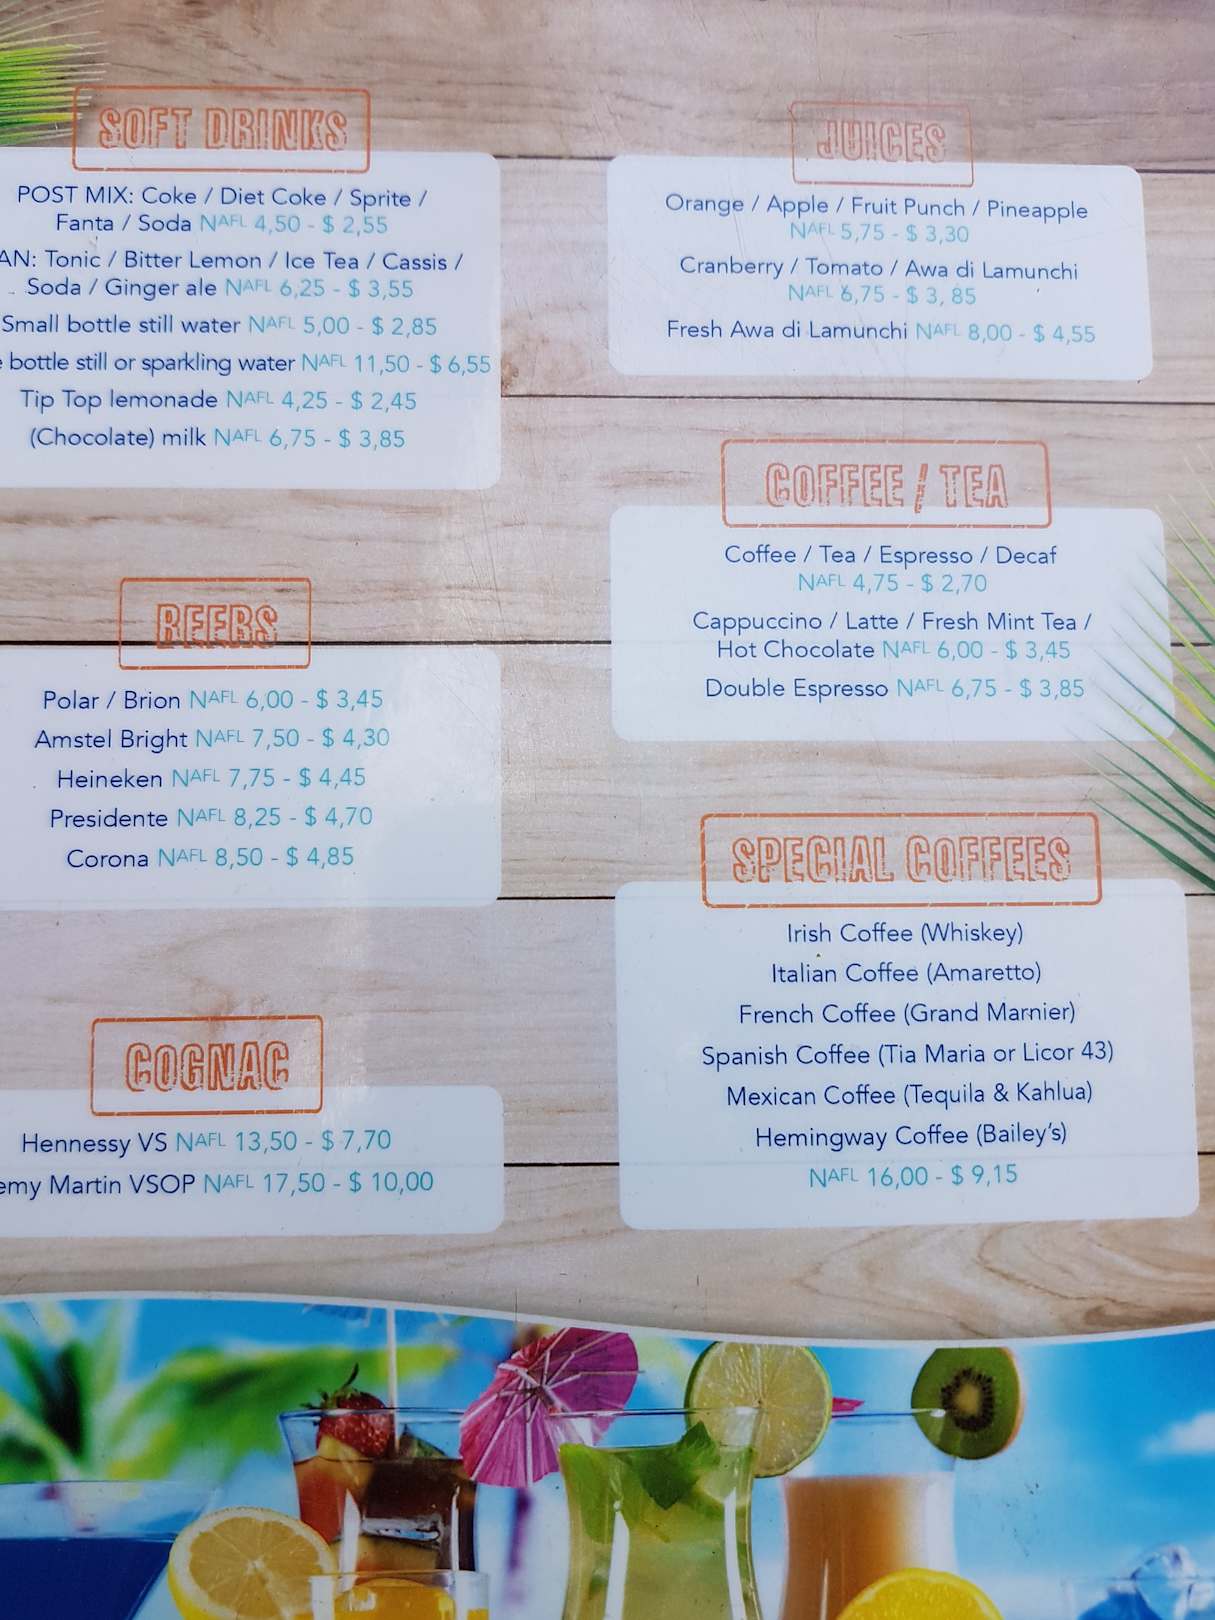 SOFT DRINKS
POST MIX: Coke / Diet Coke / Sprite /
Fanta / Soda NAFL 4,50 - $ 2,55
Tonic / Bitter Lemon / Ice Tea / Cassis /
Soda / Ginger ale NAFL 6,25 - $ 3,55
Small bottle still water NAFL 5,00 - $ 2,85
bottle still or sparkling water NAFL 11,50 - $ 6,55
Tip Top lemonade NAFL 4,25 - $ 2,45
(Chocolate) milk NAFL 6,75 - $ 3,85
BEERS
Polar / Brion NAFL 6,00 - $ 3,45
Amstel Bright NAFL 7,50 - $ 4,30
Heineken NAFL 7,75 - $ 4,45
Presidente NAFL 8,25 - $ 4,70
Corona NAFL 8,50 - $ 4,85
COGNAC
Hennessy VS NAFL 13,50 - $ 7,70
emy Martin VSOP NAFL 17,50 - $ 10,00
JUICES
Orange / Apple / Fruit Punch / Pineapple
NAFL 5,75 - $ 3,30
Cranberry / Tomato / Awa di Lamunchi
NAFL 6,75 - $ 3, 85
Fresh Awa di Lamunchi NAFL 8,00 - $ 4,55
COFFEE / TEA
Coffee / Tea / Espresso / Decaf
NAFL 4,75 - $ 2,70
Cappuccino / Latte / Fresh Mint Tea /
Hot Chocolate NAFL 6,00 - $ 3,45
Double Espresso NAFL 6,75 - $ 3,85
SPECIAL COFFEES
Irish Coffee (Whiskey)
Italian Coffee (Amaretto)
French Coffee (Grand Marnier)
Spanish Coffee (Tia Maria or Licor 43)
Mexican Coffee (Tequila & Kahlua)
Hemingway Coffee (Bailey's)
NAFL 16,00 - $ 9,15